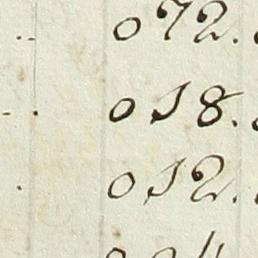 072.
018.
012.